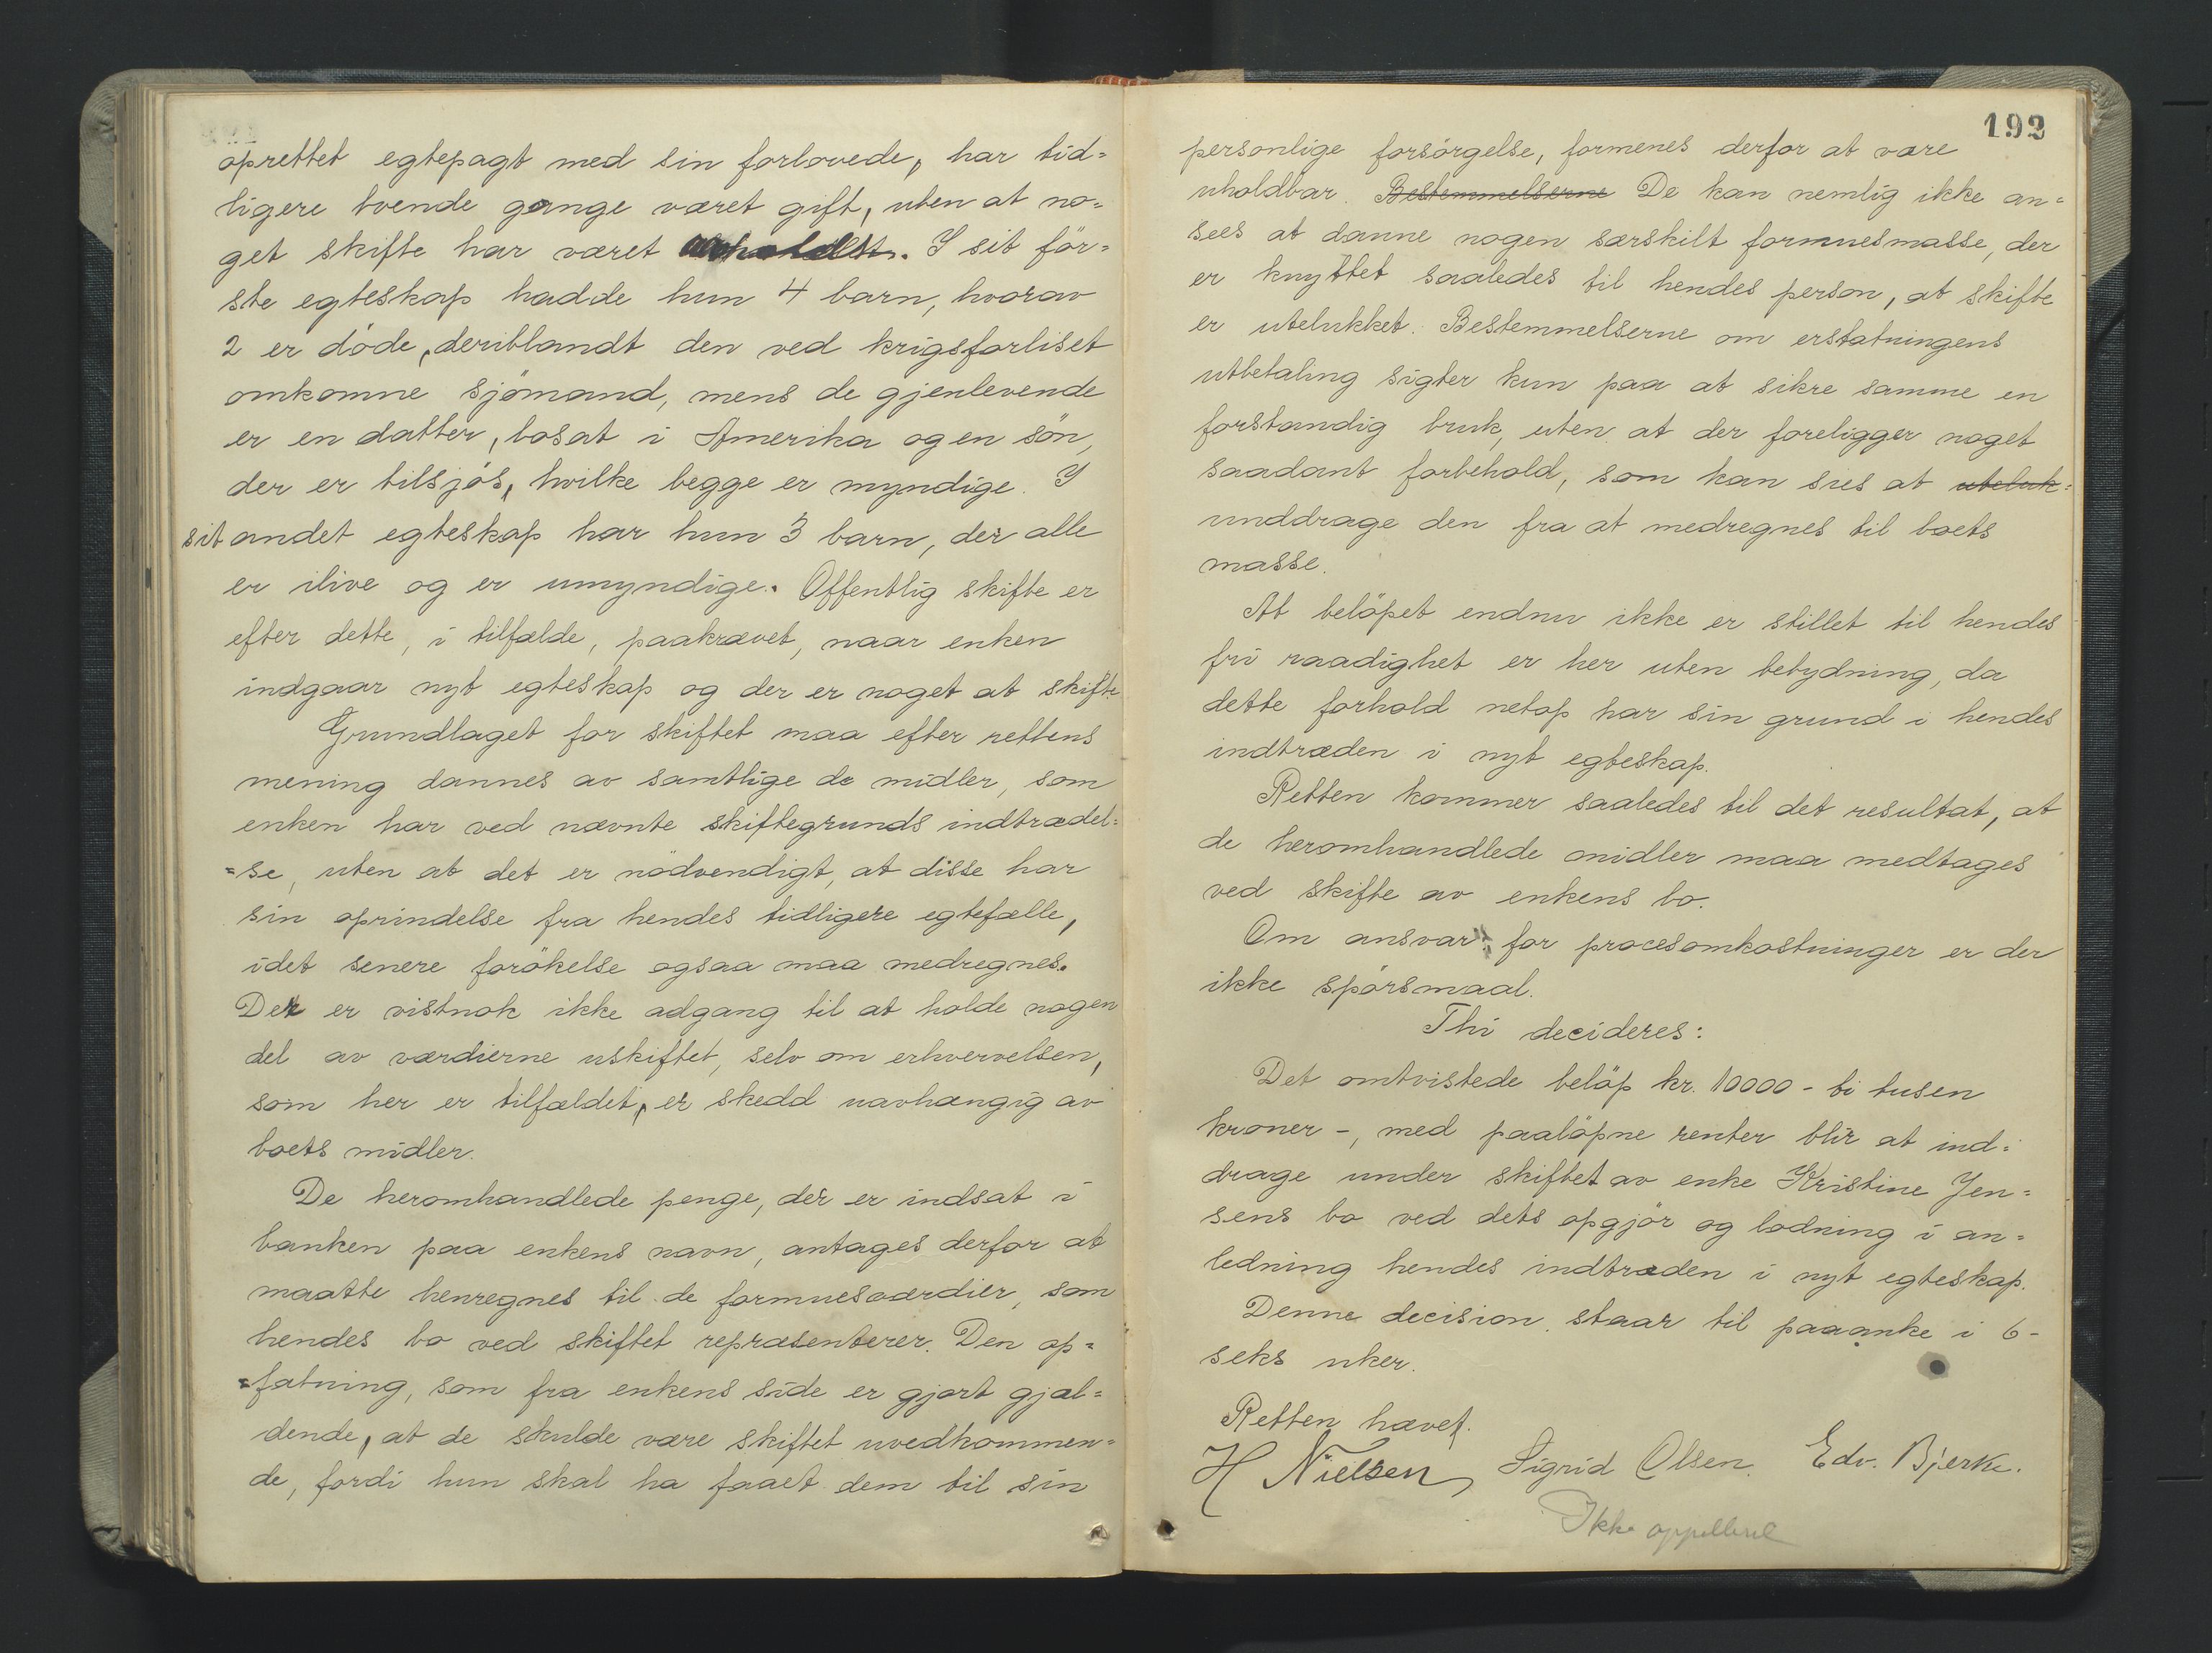 oprettet egtepagt med sin forlovede, har tid=
ligere tvende gange været gift, uten at no=
get skifte har været avholdt. I sit før=
ste egteskap hadde hun 4 barn, hvorav
2 er döde, deriblandt den ved krigsforliset
omkomne sjömand, mens de gjenlevende
er en datter, bosat i Amerika og en sön,
der er tilsjös, hvilke begge er myndige. I
sit andet egteskap har hun 3 barn, der alle
er ilive og er umyndige. Offentlig skifte er
efter dette, i tilfælde, paakrævet, naar enken
indgaar nyt egteskap og der er noget at skifte.
Grundlaget for skiftet maa efter rettens
mening dannes av samtlige de midler, som
enken har ved nævnte skiftegrunds indtrædel=
=se, uten at det er nödvendigt, at disse har
sin oprindelse fra hendes tidligere egtefælle,
idet senere forökelse ogsaa maa medregnes.
Der er vistnok ikke adgang til at holde nogen
del av værdierne uskiftet, selv om erhvervelsen,
som her er tilfældet, er skedd uavhængig av
boets midler.
De heromhandlede penge, der er indsat i
banken paa enkens navn, antages derfor at
maatte henregnes til de formuesværdier, som
hendes bo ved skiftet repræsenterer. Den op=
=fatning, som fra enkens side er gjort gjæl=
dende, at de skulde være skiftet uvedkommen=
de, fordi hun skal ha faaet dem til sin
192
personlige forsörgelse, formenes derfor at være
uholdbar. Bestemmelserne De kan nemlig ikke an=
sees at danne nogen særskilt formuesmasse, der
er knyttet saaledes til hendes person, at skifte
er utelukket. Bestemmelserne om erstatningens
utbetaling sigter kun paa at sikre samme en
forstandig bruk, uten at der foreligger noget
saadant forbehold, som kan sies at uteluk=
unddrage den fra at medregnes til boets
masse.
At belöpet endnu ikke er stillet til hendes
fri raadighet er her uten betydning, da
dette forhold netop har sin grund i hendes
indtræden i nyt egteskap.
Retten kommer saaledes til det resultat, at
de heromhandlede midler maa medtages
ved skifte av enkens bo.
Om ansvar for procesomkostninger er der
ikke spörsmaal.
Thi decideres:
Det omtvistede belöp kr. 10000 - ti tusen
kroner -, med paalöpne renter blir at ind=
drage under skiftet av enke Kristine Jen=
sens bo ved dets opgjör og lodning i an=
ledning hendes indtræden i nyt egteskap.
Denne decision staar til paaanke i 6-
seks uker.
Retten hævet.
H Nielsen Sigrid Olsen. Edv. Bjerke.
Ikke appelleret